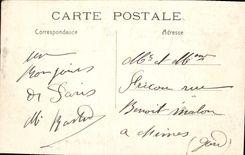 CARTE POSTALE
Correspondance
Adresse
un
Bonjour
de Paris
Mr et Mme
rue
Benoit Malon
a Nimes
(Gard)